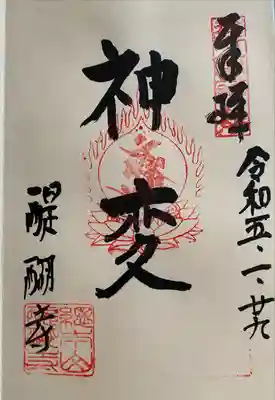 奉拝
令和五・一・廿九
神変
醍醐寺